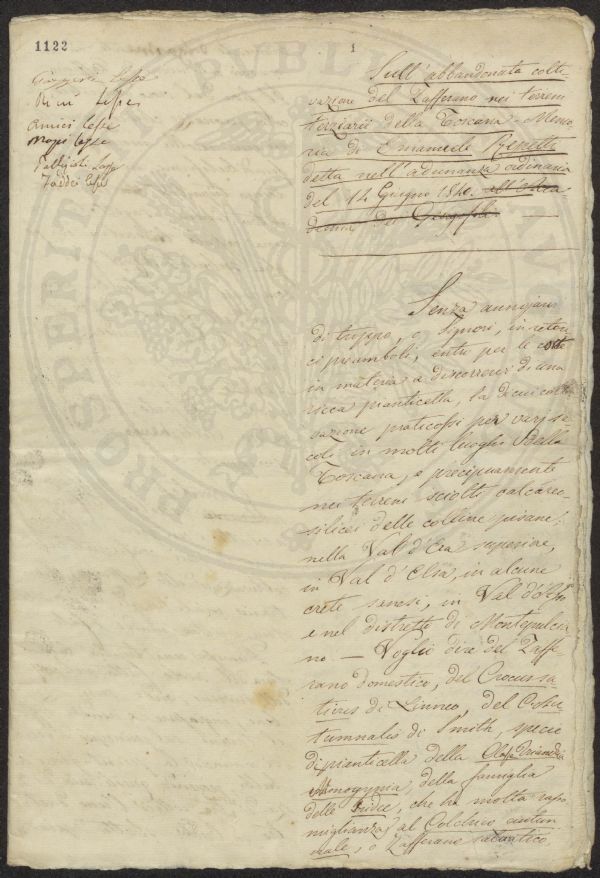 1122
1
Ridolfi Lesse
Amici lesse
Mazzi lesse
Taddei lesse
Sull'abbandonata colti-
vazione del Zafferano nei terreni
terziarii della Toscana - Memo-
ria di Emanuele Repetti
detta nell'adunanza ordinaria
del 14 Giugno 1840. all'Acca-
demia dei Georgofili
Senza annojarvi
di troppo, o Signori, in
ci preamboli, entro per le corte
in materia a discorrervi di una
ricca pianticella, la di cui colti-
vazione praticossi per varj se-
coli in molti luoghi della
Toscana, e precipuamente
nei terreni sciolti calcareo-
silicei delle colline pisane,
nella Val d'Era superiore,
in Val d'Elsa, in alcune
crete sanesi, in Val d'Orcia
e nel distretto di Montepulcia-
no — Voglio dire del Zaffe-
rano domestico, del Crocus sa-
tivus di Linneo, del
tumnalis di Smith, specie
di pianticella della Classe Triandria
Monogynia, della famiglia
delle Iridee, che ha molta rasso-
miglianza al Colchico autun-
nale, o Zafferano salvatico,
PROSPERITATI PUBLICAE AU